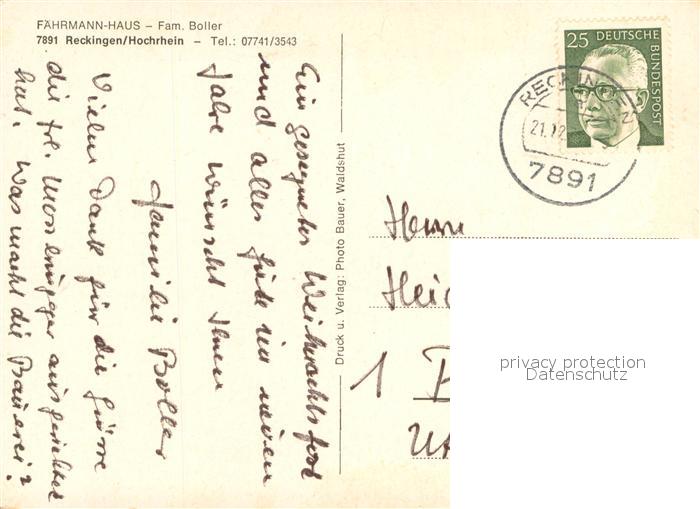 FÄHRMANN-HAUS – Fam. Boller
7891 Reckingen/Hochrhein – Tel.: 07741/3543
Ein gesegnetes Weihnachtsfest
und alles Gute im neuen
Jahre wünscht Ihnen
Familie Boller
Vielen Dank für die Grüsse
die Frl. ausgerichtet
hat. Was macht die Brauerei?
Druck u. Verlag: Photo Bauer, Waldshut
25 DEUTSCHE
BUNDESPOST
RECKINGEN
21.12
7891
Herrn
Hei
1
privacy protection
Datenschutz